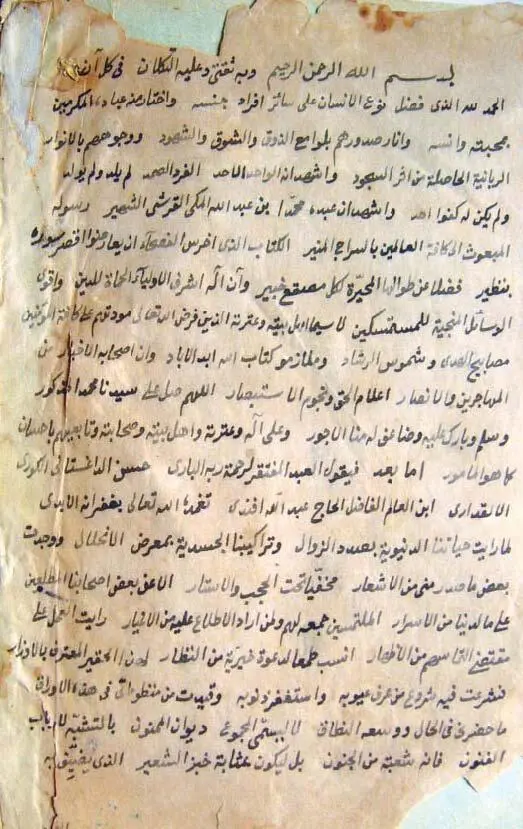 بسم الله الرحمن الرحيم وبه ثقتي وعليه التكلان في كل آن
الحمد لله الذى فضل نوع الانسان على سائر افراد جنسه واختار منه عباده المكرمين
بمحبته وانسه وانار صدورهم بلوامع الذوق والشوق والشهود ووجوههم بالانوار
الربانية الحاصلة من اثر السجود واشهد انه الواحد الاحد الفرد الصمد لم يلد ولم يولد
ولم يكن له كفوا احد واشهد ان عبده محمدا ابن عبد الله المكى القرشى الشهير رسوله
المبعوث الى كافة العالمين بالسراج المنير الكتاب الذى اخرس الفصحاء ان يعارضوا اقصر سوره
بنظير فضلا عن طوالها المحيرة لكل مصقع خبير وآن آله اشرف الاولياء الحماة للدين واقوى
الوسائل المنجية للمستمسكين لا سيما اهل بيته وعترته الذين فرض الله تعالى مودتهم على كافة المؤمنين
مصابيح الهدى وشموس الرشاد وملازمو كتاب الله ابد الآباد وان اصحابه الاخيار من
المهاجرين والانصار اعلام الحق ونجوم الاستبصار اللهم صل على سيدنا محمد المذكور
وسلم وبارك عليه وضاعف له منا الاجور وعلى آله وعترته واهل بيته وصحابته وتابعيهم باحسان
كما هو المأمور اما بعد فيقول العبد المفتقر لرحمة ربه البارى حسن الداغستانى الكورى
الالقدارى ابن العالم الفاضل الحاج عبد الله افندى تغمده الله تعالى بغفرانه الابدى
لما رايت حياتنا الدنيوية بصدد الزوال وتراكيبنا الجسدية بمعرض الانحلال ووجدت
بعض ما صدر منى من الاشعار مخفيا تحت الحجب والاستار الا عن بعض اصحابنا المطلعين
على ما لدينا من الاسرار الملتمسين جمعه لهم ولمن اراد الاطلاع عليه من الاخيار رايت العمل على
مقتضى التماسهم من الاظهار انسب طمعا لدعوة خيرية من النظار لهذا الحقير المعترف بالاوزار
فشرعت فيه شروع من عرف عيوبه واستغفر ذنوبه وقيدت من منظوماتى فى هذه الاوراق
ما حضرنى فى الحال ووسعه النطاق ليسمى المجموع ديوان الممنون بالتشبه لارباب
الفنون فانه شعبة من الجنون بل ليكون بمثابة خبز الشعير الذى يضيق به